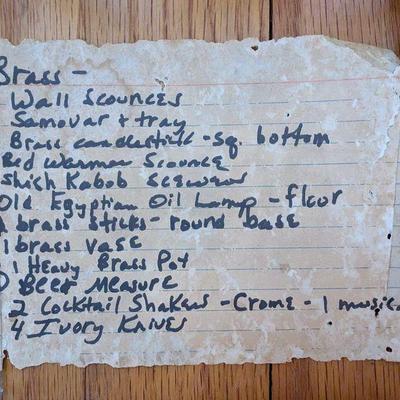 Brass -
Wall Scounces
Samovar + tray
Brass candlestick - sq. bottom
Bed Warmer Scounce
Shish Kabob Scewers
Old Egyptian Oil Lamp - flour
brass sticks - round base
1 brass vase
1 Heavy Brass Pot
Beer Measure
2 Cocktail Shakers - Crome - 1 music
4 Ivory Knives